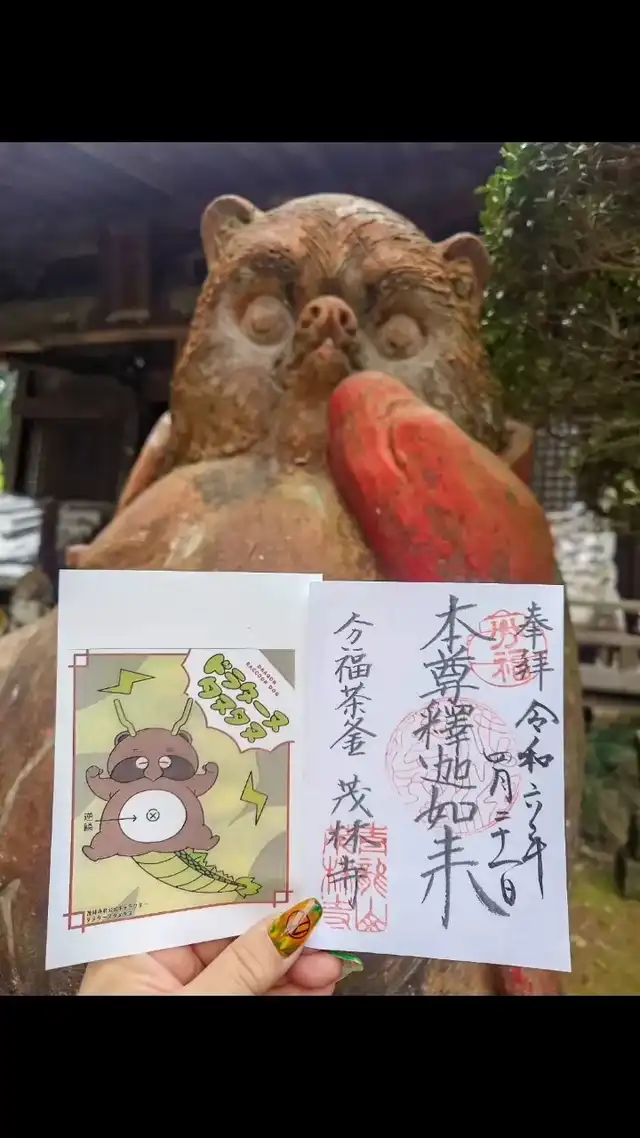 DRAGON
RACCOON DOG
ドラゴーヌ
タヌタヌ
逆鱗
奉拝
令和六年
四月二十一日
本尊釋迦如来
分福茶釜
茂林寺